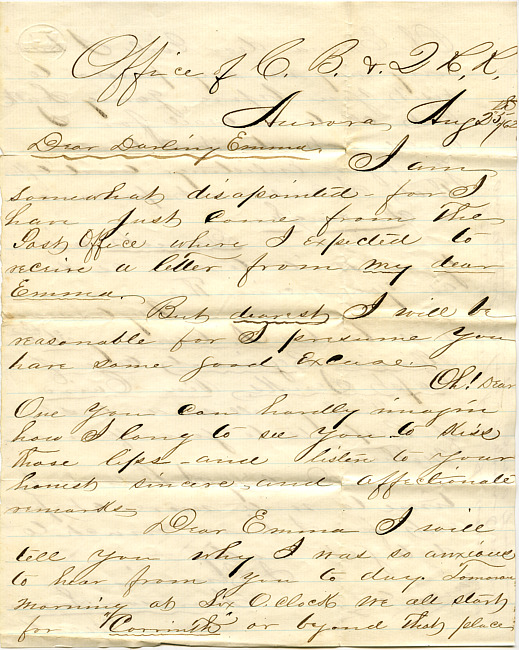 Office of C. B. & Q R. R.
Aurora, Aug 25 /62
Dear Darling Emma.
I am
somewhat disapointed - for I
have just come from the
Post Office where I expected to
receive a letter from my dear
Emma.
But dearest I will be
reasonable for I presume you
have some good excuse.
Oh! Dear
One you can hardly imagin
how I long to see you to kiss
those lips - and listen to your
honest sincere and affectionate
remarks
Dear Emma I will
tell you why I was so anxious
to hear from you to day. Tomorow
morning at Six O.Clock we all start
for "Corrinth" or beyond that place